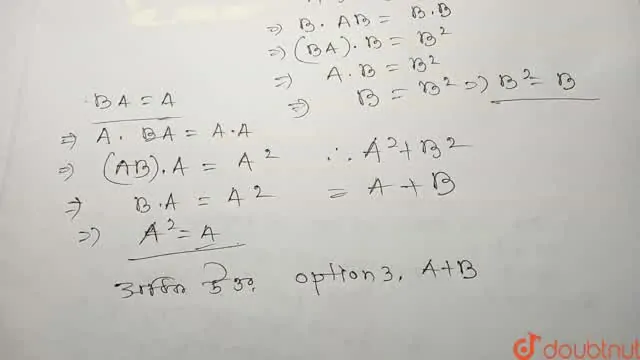 ⇒ B. AB = B.B
⇒ (BA).B = B²
⇒ A.B = B²
⇒ B = B² ⇒ B² = B
BA = A
⇒ A. BA = A.A
⇒ (AB).A = A²
⇒ B.A = A²
⇒ A² = A
∴ A² + B²
= A + B
option 3, A+B
doubtnut